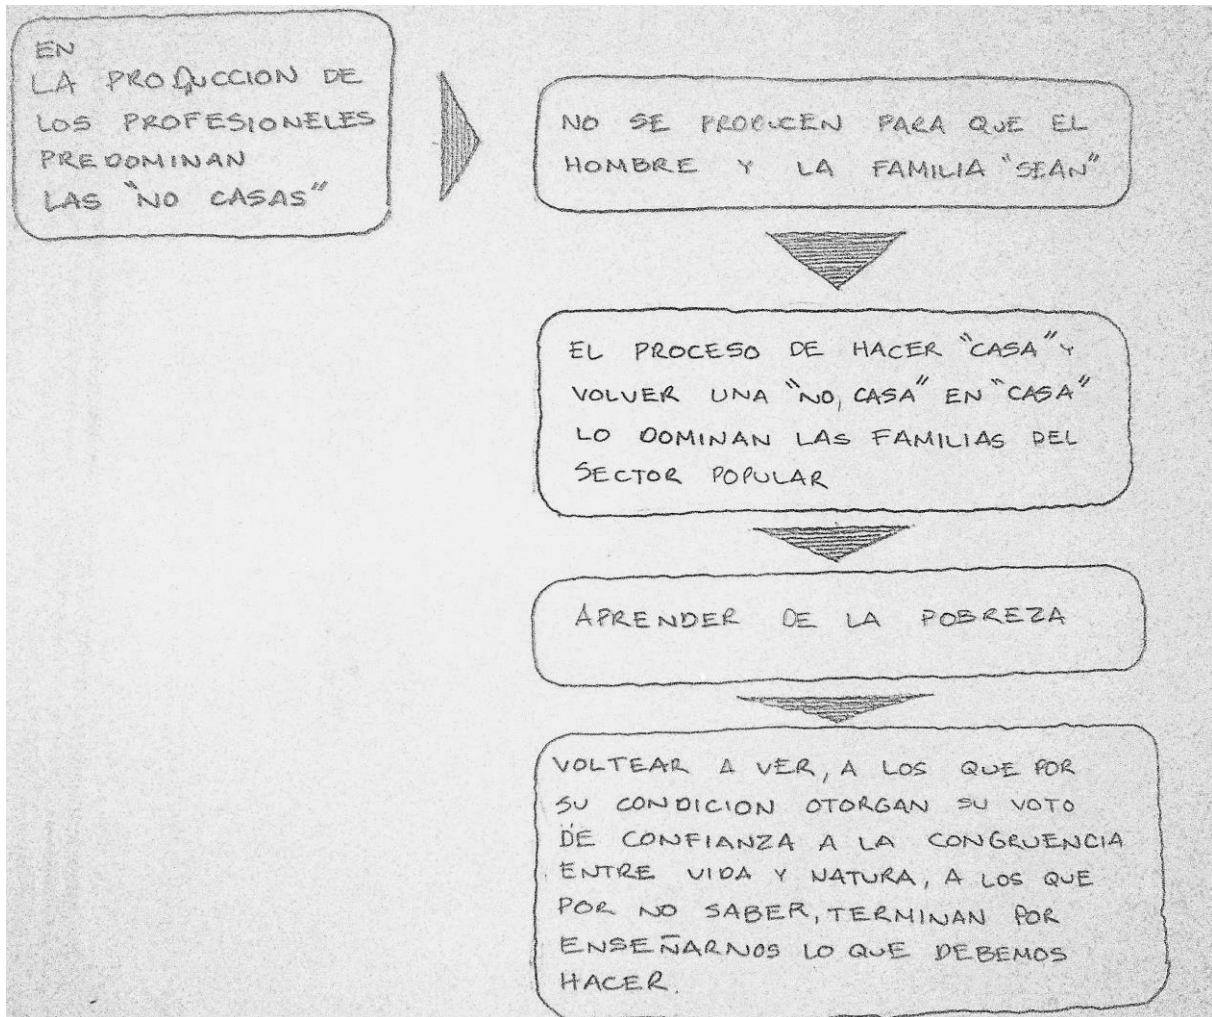 EN
LA PRODUCCION DE
LOS PROFESIONELES
PREDOMINAN
LAS "NO CASAS"
NO SE PRODUCEN PARA QUE EL
HOMBRE Y LA FAMILIA "SEAN"
EL PROCESO DE HACER "CASA" Y
VOLVER UNA "NO, CASA" EN "CASA"
LO DOMINAN LAS FAMILIAS DEL
SECTOR POPULAR
APRENDER DE LA POBREZA
VOLTEAR A VER, A LOS QUE POR
SU CONDICION OTORGAN SU VOTO
DE CONFIANZA A LA CONGRUENCIA
ENTRE VIDA Y NATURA, A LOS QUE
POR NO SABER, TERMINAN POR
ENSEÑARNOS LO QUE DEBEMOS
HACER.